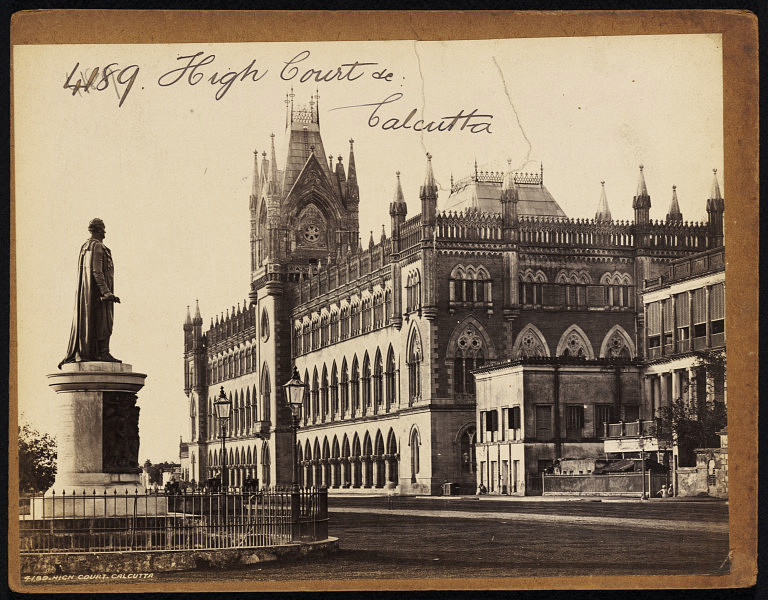 4189. High Court &c.
Calcutta
4189. HIGH COURT. CALCUTTA